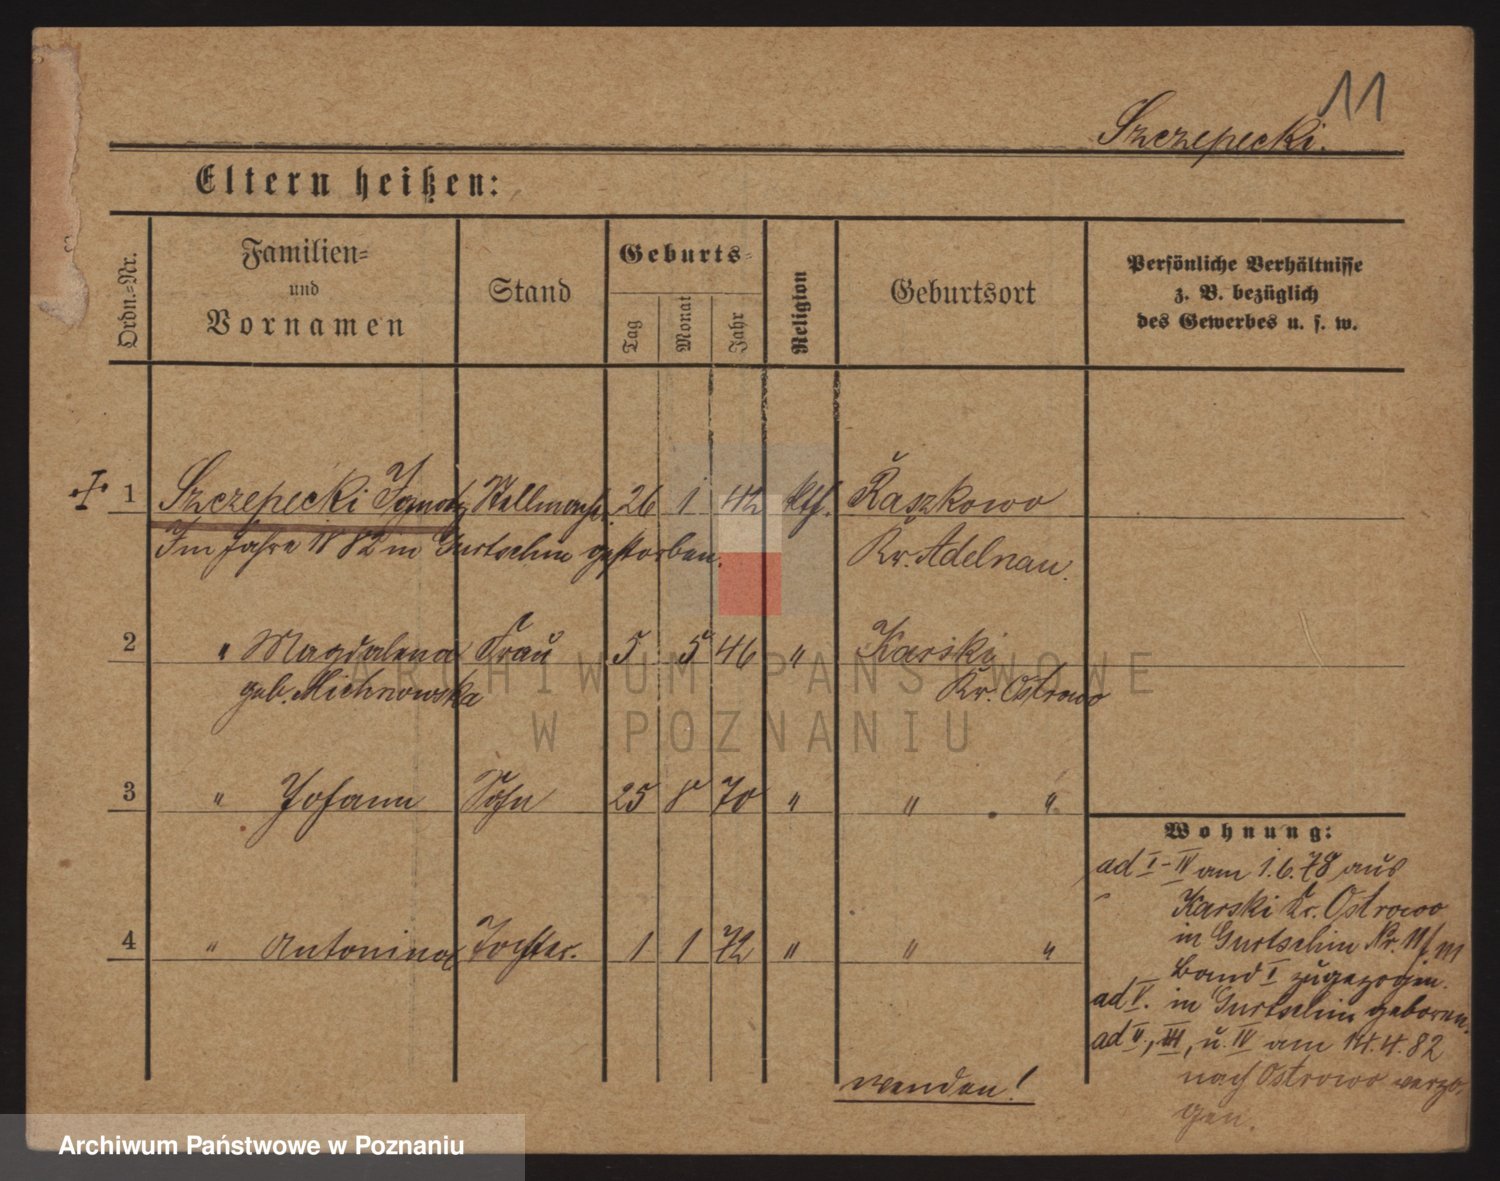 11
Szczepecki.
Eltern heißen:
Ordn.-Nr.
Familien-
und
Vornamen
Stand
Geburts-
Tag
Monat
Jahr
Religion
Geburtsort
Persönliche Verhältnisse
z. B. bezüglich
des Gewerbes u. s. w.
1 Szczepecki Ignatz Stellmach. 26 1 42 kth. Raszkowo
Im Jahre 1882 in Gurtschin gestorben. Kr. Adelnau.
2 " Magdalena Frau 5 5 46 " Karski
geb. Michnowska Kr. Ostrowo
3 " Johann Sohn 25 8 70 " " "
4 " Antonina Tochter. 1 1 72 " " "
Wohnung:
ad I-IV am 1.6.78 aus
Karski Kr. Ostrowo
in Gurtschin Nr. 11
Band I zugezogen.
ad V. in Gurtschin geboren.
ad II, III, u. IV am 14.4.82
nach Ostrowo verzo-
gen.
wenden!
ARCHIWUM PAŃSTWOWE
W POZNANIU
Archiwum Państwowe w Poznaniu